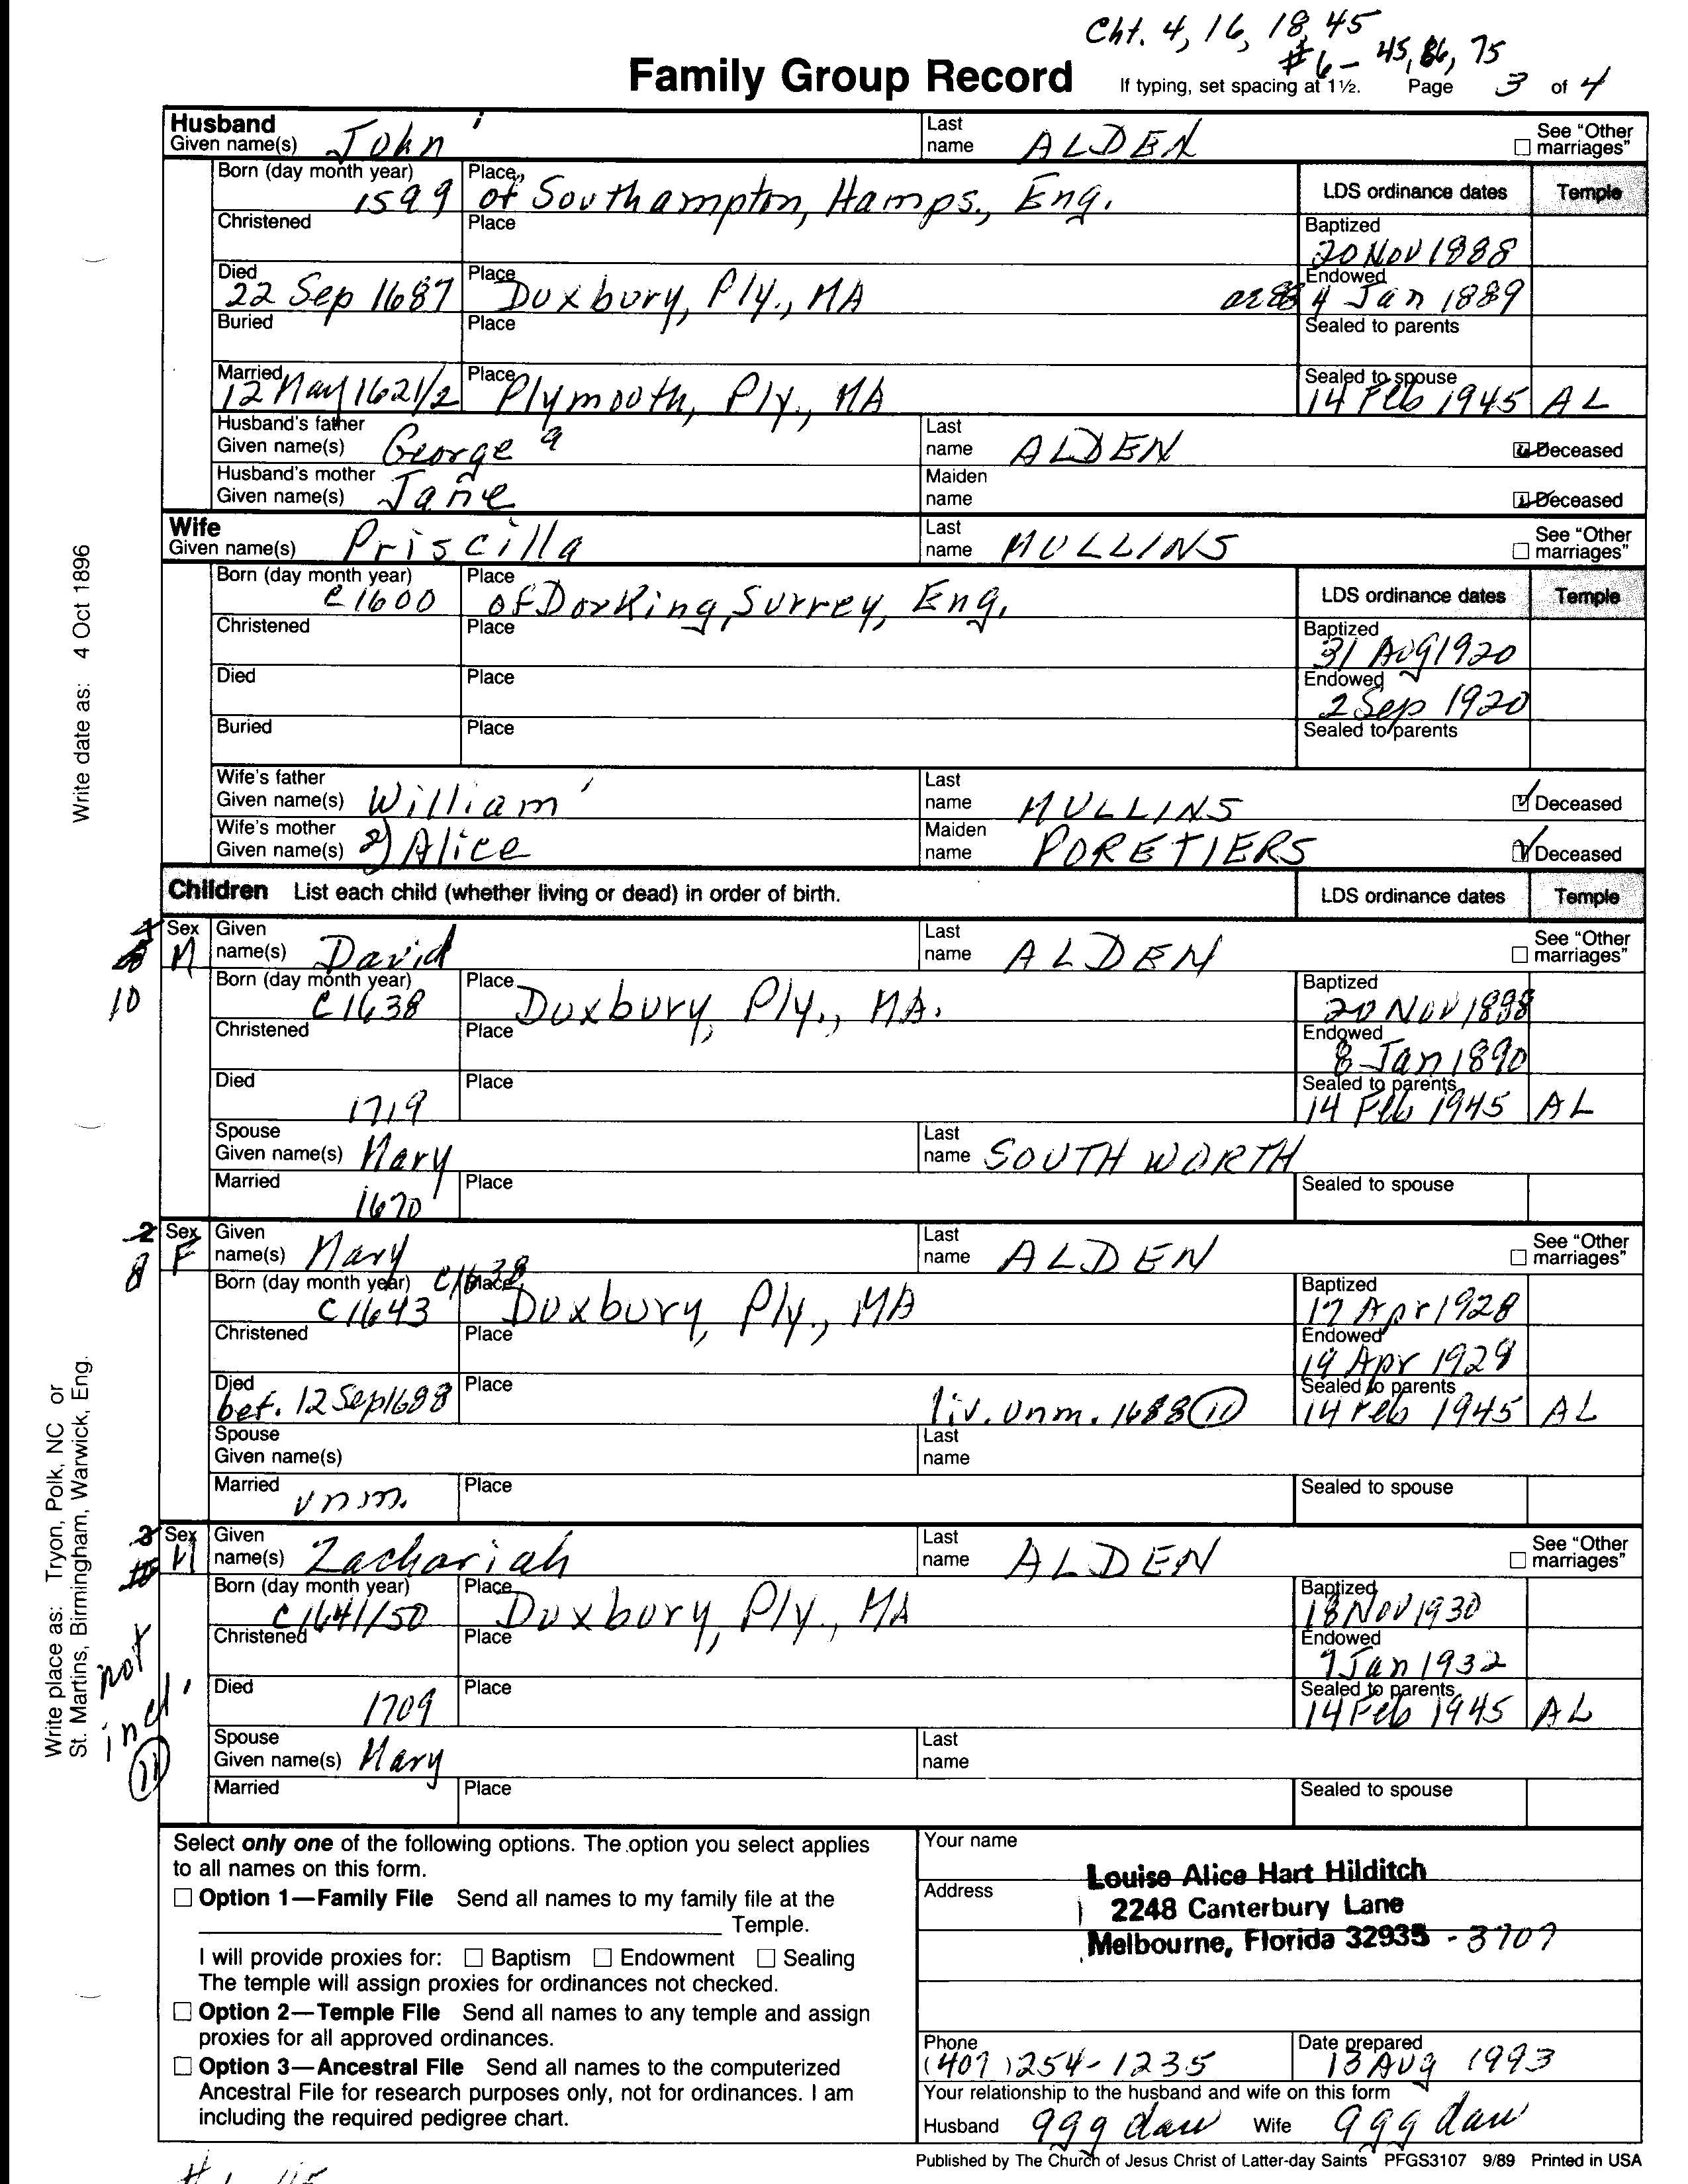 Cht. 4, 16, 18, 45
#6- 45, 86, 75
Family Group Record If typing, set spacing at 1½. Page 3 of 4
Husband
Given name(s) John Last name ALDEN See "Other marriages"
Born (day month year) 1599 Place of Southampton, Hamps., Eng. LDS ordinance dates Temple
Christened Place Baptized 20 Nov 1888
Died 22 Sep 1687 Place Duxbury, Ply., MA Endowed 4 Jan 1889
Buried Place Sealed to parents
Married 12 May 1621/2 Place Plymouth, Ply., MA Sealed to spouse 14 Feb 1945 AL
Husband's father
Given name(s) George Last name ALDEN Deceased
Husband's mother
Given name(s) Jane Maiden name Deceased
Wife
Given name(s) Priscilla Last name MULLINS See "Other marriages"
Born (day month year) c1600 Place of Dorking, Surrey, Eng. LDS ordinance dates Temple
Christened Place Baptized 31 Aug 1920
Died Place Endowed 2 Sep 1920
Buried Place Sealed to parents
Wife's father
Given name(s) William Last name MULLINS Deceased
Wife's mother
Given name(s) 2) Alice Maiden name PORETIERS Deceased
Children List each child (whether living or dead) in order of birth. LDS ordinance dates Temple
10 Sex M Given name(s) David Last name ALDEN See "Other marriages"
Born (day month year) c1638 Place Duxbury, Ply., MA. Baptized 20 Nov 1898
Christened Place Endowed 8 Jan 1890
Died 1719 Place Sealed to parents 14 Feb 1945 AL
Spouse
Given name(s) Mary Last name SOUTHWORTH
Married 1670 Place Sealed to spouse
2 8 Sex F Given name(s) Mary Last name ALDEN See "Other marriages"
Born (day month year) c1643 c1638 Place Duxbury, Ply., MA Baptized 17 Apr 1928
Christened Place Endowed 19 Apr 1929
Died bef. 12 Sep 1688 Place liv. unm. 1688 (11) Sealed to parents 14 Feb 1945 AL
Spouse
Given name(s) Last name
Married unm. Place Sealed to spouse
3 Sex M Given name(s) Zachariah Last name ALDEN See "Other marriages"
Born (day month year) c1641/50 Place Duxbury, Ply., MA Baptized 18 Nov 1930
Christened Place Endowed 7 Jan 1932
Died 1709 Place Sealed to parents 14 Feb 1945 AL
Spouse
Given name(s) Mary Last name
Married Place Sealed to spouse
not incl. (11)
Write date as: 4 Oct 1896
Write place as: Tryon, Polk, NC or
St. Martins, Birmingham, Warwick, Eng.
Select only one of the following options. The option you select applies
to all names on this form.
Option 1—Family File Send all names to my family file at the
Temple.
I will provide proxies for: Baptism Endowment Sealing
The temple will assign proxies for ordinances not checked.
Option 2—Temple File Send all names to any temple and assign
proxies for all approved ordinances.
Option 3—Ancestral File Send all names to the computerized
Ancestral File for research purposes only, not for ordinances. I am
including the required pedigree chart.
Your name Louise Alice Hart Hilditch
Address 2248 Canterbury Lane
Melbourne, Florida 32935 - 3707
Phone (407) 254-1235 Date prepared 13 Aug 1993
Your relationship to the husband and wife on this form
Husband ggg dau Wife ggg dau
Published by The Church of Jesus Christ of Latter-day Saints PFGS3107 9/89 Printed in USA